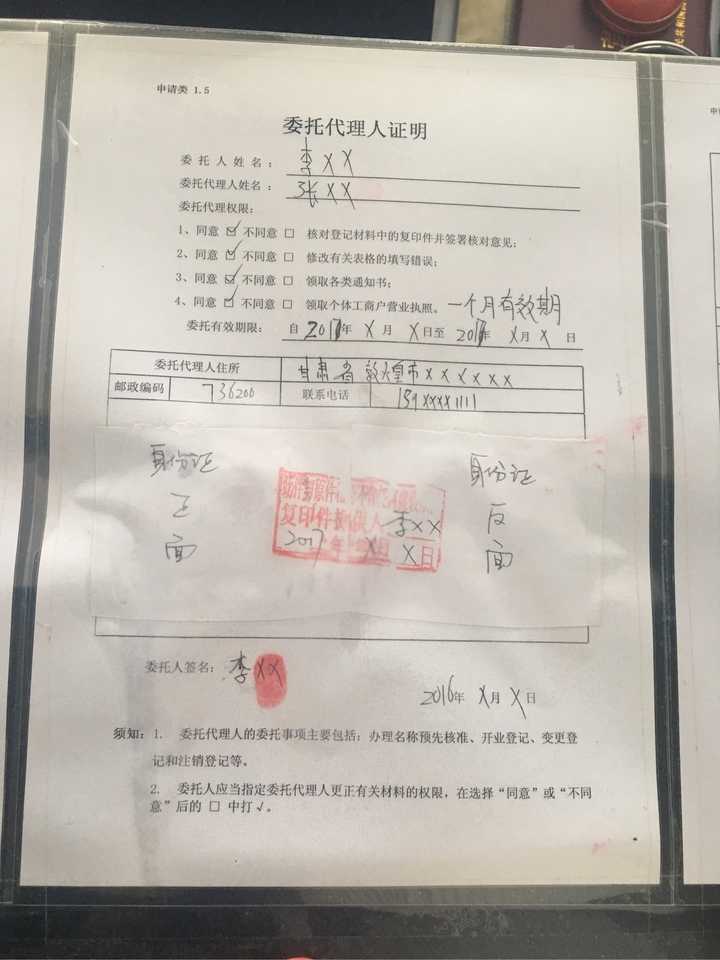 申请类 1.5
委托代理人证明
委托人姓名： 李XX
委托代理人姓名： 张XX
委托代理权限：
1、同意 ☑ 不同意 □ 核对登记材料中的复印件并签署核对意见；
2、同意 ☑ 不同意 □ 修改有关表格的填写错误；
3、同意 ☑ 不同意 □ 领取各类通知书；
4、同意 ☑ 不同意 □ 领取个体工商户营业执照。 一个月有效期
委托有效期限： 自 2017年 X月 X日至 2017年 X月 X 日
委托代理人住所 甘肃省敦煌市XXXXXX
邮政编码 736200 联系电话 159XXXX1111
身份证 正面
身份证 反面
复印件提供人 李XX
2017年 X月 X日
委托人签名： 李XX
2016年 X月 X日
须知：1. 委托代理人的委托事项主要包括：办理名称预先核准、开业登记、变更登
记和注销登记等。
2. 委托人应当指定委托代理人更正有关材料的权限，在选择“同意”或“不同
意”后的 □ 中打√。